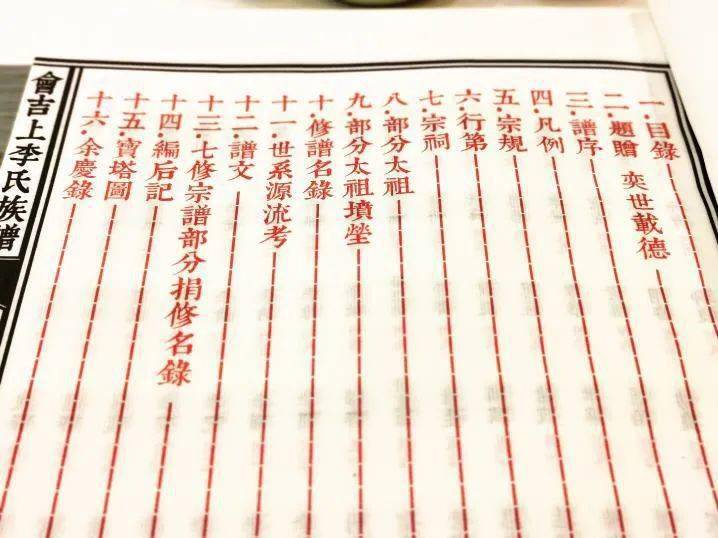 一.目錄
二.題贈 奕世載德
三.譜序
四.凡例
五.宗規
六.行第
七.宗祠
八.部分太祖
九.部分太祖墳塋
十.修譜名錄
十一.世系源流考
十二.譜文
十三.七修宗譜部分捐修名錄
十四.編后記
十五.寶塔圖
十六.余慶錄
會吉上李氏族譜